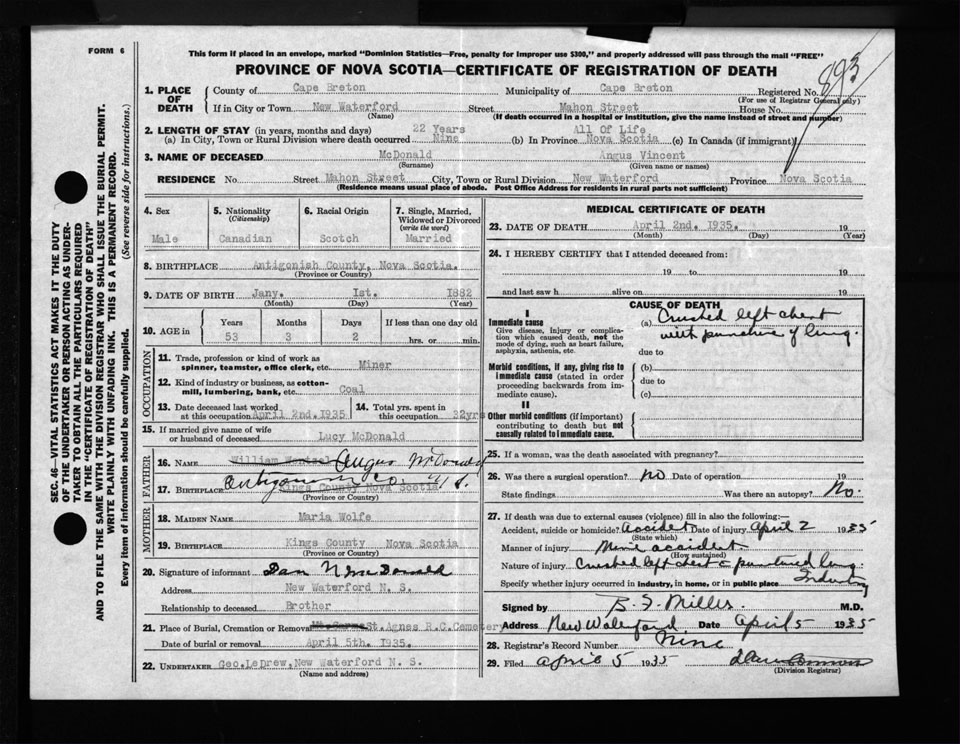 FORM 6
This form if placed in an envelope, marked "Dominion Statistics—Free, penalty for improper use $300," and properly addressed will pass through the mail "FREE"
PROVINCE OF NOVA SCOTIA—CERTIFICATE OF REGISTRATION OF DEATH
893
1. PLACE OF DEATH County of Cape Breton Municipality of Cape Breton Registered No.
(For use of Registrar General only)
If in City or Town New Waterford Street Mahon Street House No.
(Name) (If death occurred in a hospital or institution, give the name instead of street and number)
2. LENGTH OF STAY (in years, months and days) 22 Years All Of Life
(a) In City, Town or Rural Division where death occurred Nine (b) In Province Nova Scotia (c) In Canada (if immigrant)
3. NAME OF DECEASED McDonald Angus Vincent
(Surname) (Given name or names)
RESIDENCE No. Street Mahon Street City, Town or Rural Division New Waterford Province Nova Scotia
(Residence means usual place of abode. Post Office Address for residents in rural parts not sufficient)
SEC. 46—VITAL STATISTICS ACT MAKES IT THE DUTY
OF THE UNDERTAKER OR PERSON ACTING AS UNDER-
TAKER TO OBTAIN ALL THE PARTICULARS REQUIRED
IN THE "CERTIFICATE OF REGISTRATION OF DEATH"
AND TO FILE THE SAME WITH THE DIVISION REGISTRAR WHO SHALL ISSUE THE BURIAL PERMIT.
WRITE PLAINLY WITH UNFADING INK. THIS IS A PERMANENT RECORD.
Every item of information should be carefully supplied. (See reverse side for instructions.)
4. Sex 5. Nationality 6. Racial Origin 7. Single, Married,
(Citizenship) Widowed or Divorced
(write the word)
Male Canadian Scotch Married
8. BIRTHPLACE Antigonish County, Nova Scotia.
(Province or Country)
9. DATE OF BIRTH Jany. 1st. 1882
(Month) (Day) (Year)
10. AGE in Years Months Days If less than one day old
53 3 2 hrs. or min.
OCCUPATION
11. Trade, profession or kind of work as
spinner, teamster, office clerk, etc. Miner
12. Kind of industry or business, as cotton-
mill, lumbering, bank, etc. Coal
13. Date deceased last worked 14. Total yrs. spent in
at this occupation April 2nd. 1935 this occupation 22yrs
15. If married give name of wife
or husband of deceased Lucy McDonald
FATHER
16. NAME William Wentzel Angus McDonald
17. Birthplace Kings County Nova Scotia Antigonish Co. N S.
(Province or Country)
MOTHER
18. MAIDEN NAME Maria Wolfe
19. BIRTHPLACE Kings County Nova Scotia
(Province or Country)
20. Signature of informant Dan N McDonald
Address New Waterford N. S.
Relationship to deceased Brother
21. Place of Burial, Cremation or Removal St. Agnes R.C. Cemetery
Date of burial or removal April 5th. 1935.
22. UNDERTAKER Geo. LeDrew, New Waterford N. S.
(Name and address)
MEDICAL CERTIFICATE OF DEATH
23. DATE OF DEATH April 2nd. 1935. 19
(Month) (Day) (Year)
24. I HEREBY CERTIFY that I attended deceased from:
19 to 19
and last saw h alive on 19
CAUSE OF DEATH
I
Immediate cause
Give disease, injury or complica-
tion which caused death, not the
mode of dying, such as heart failure,
asphyxia, asthenia, etc.
(a) Crushed left chest
with puncture of lung.
due to
Morbid conditions, if any, giving rise to
immediate cause (stated in order
proceeding backwards from im-
mediate cause).
(b)
due to
(c)
II
Other morbid conditions (if important)
contributing to death but not
causally related to immediate cause.
25. If a woman, was the death associated with pregnancy?
26. Was there a surgical operation? No Date of operation 19
State findings Was there an autopsy? No.
27. If death was due to external causes (violence) fill in also the following:—
Accident, suicide or homicide? Accident Date of injury April 2 1935
(State which)
Manner of injury Mine accident.
(How sustained)
Nature of injury Crushed left chest & punctured lung.
Specify whether injury occurred in industry, in home, or in public place Industry
Signed by M.D.
Address New Waterford Date April 5 1935
28. Registrar's Record Number Nine
29. Filed April 5 1935
(Division Registrar)